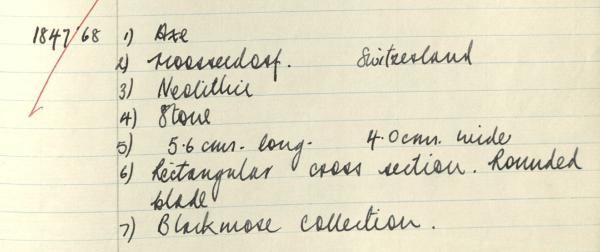 1847/68 1) Axe
2) Moosseedorf. Switzerland
3) Neolithic
4) Stone
5) 5.6 cms. long. 4.0 cms. wide
6) Rectangular cross section. Rounded
blade
7) Blackmore collection.